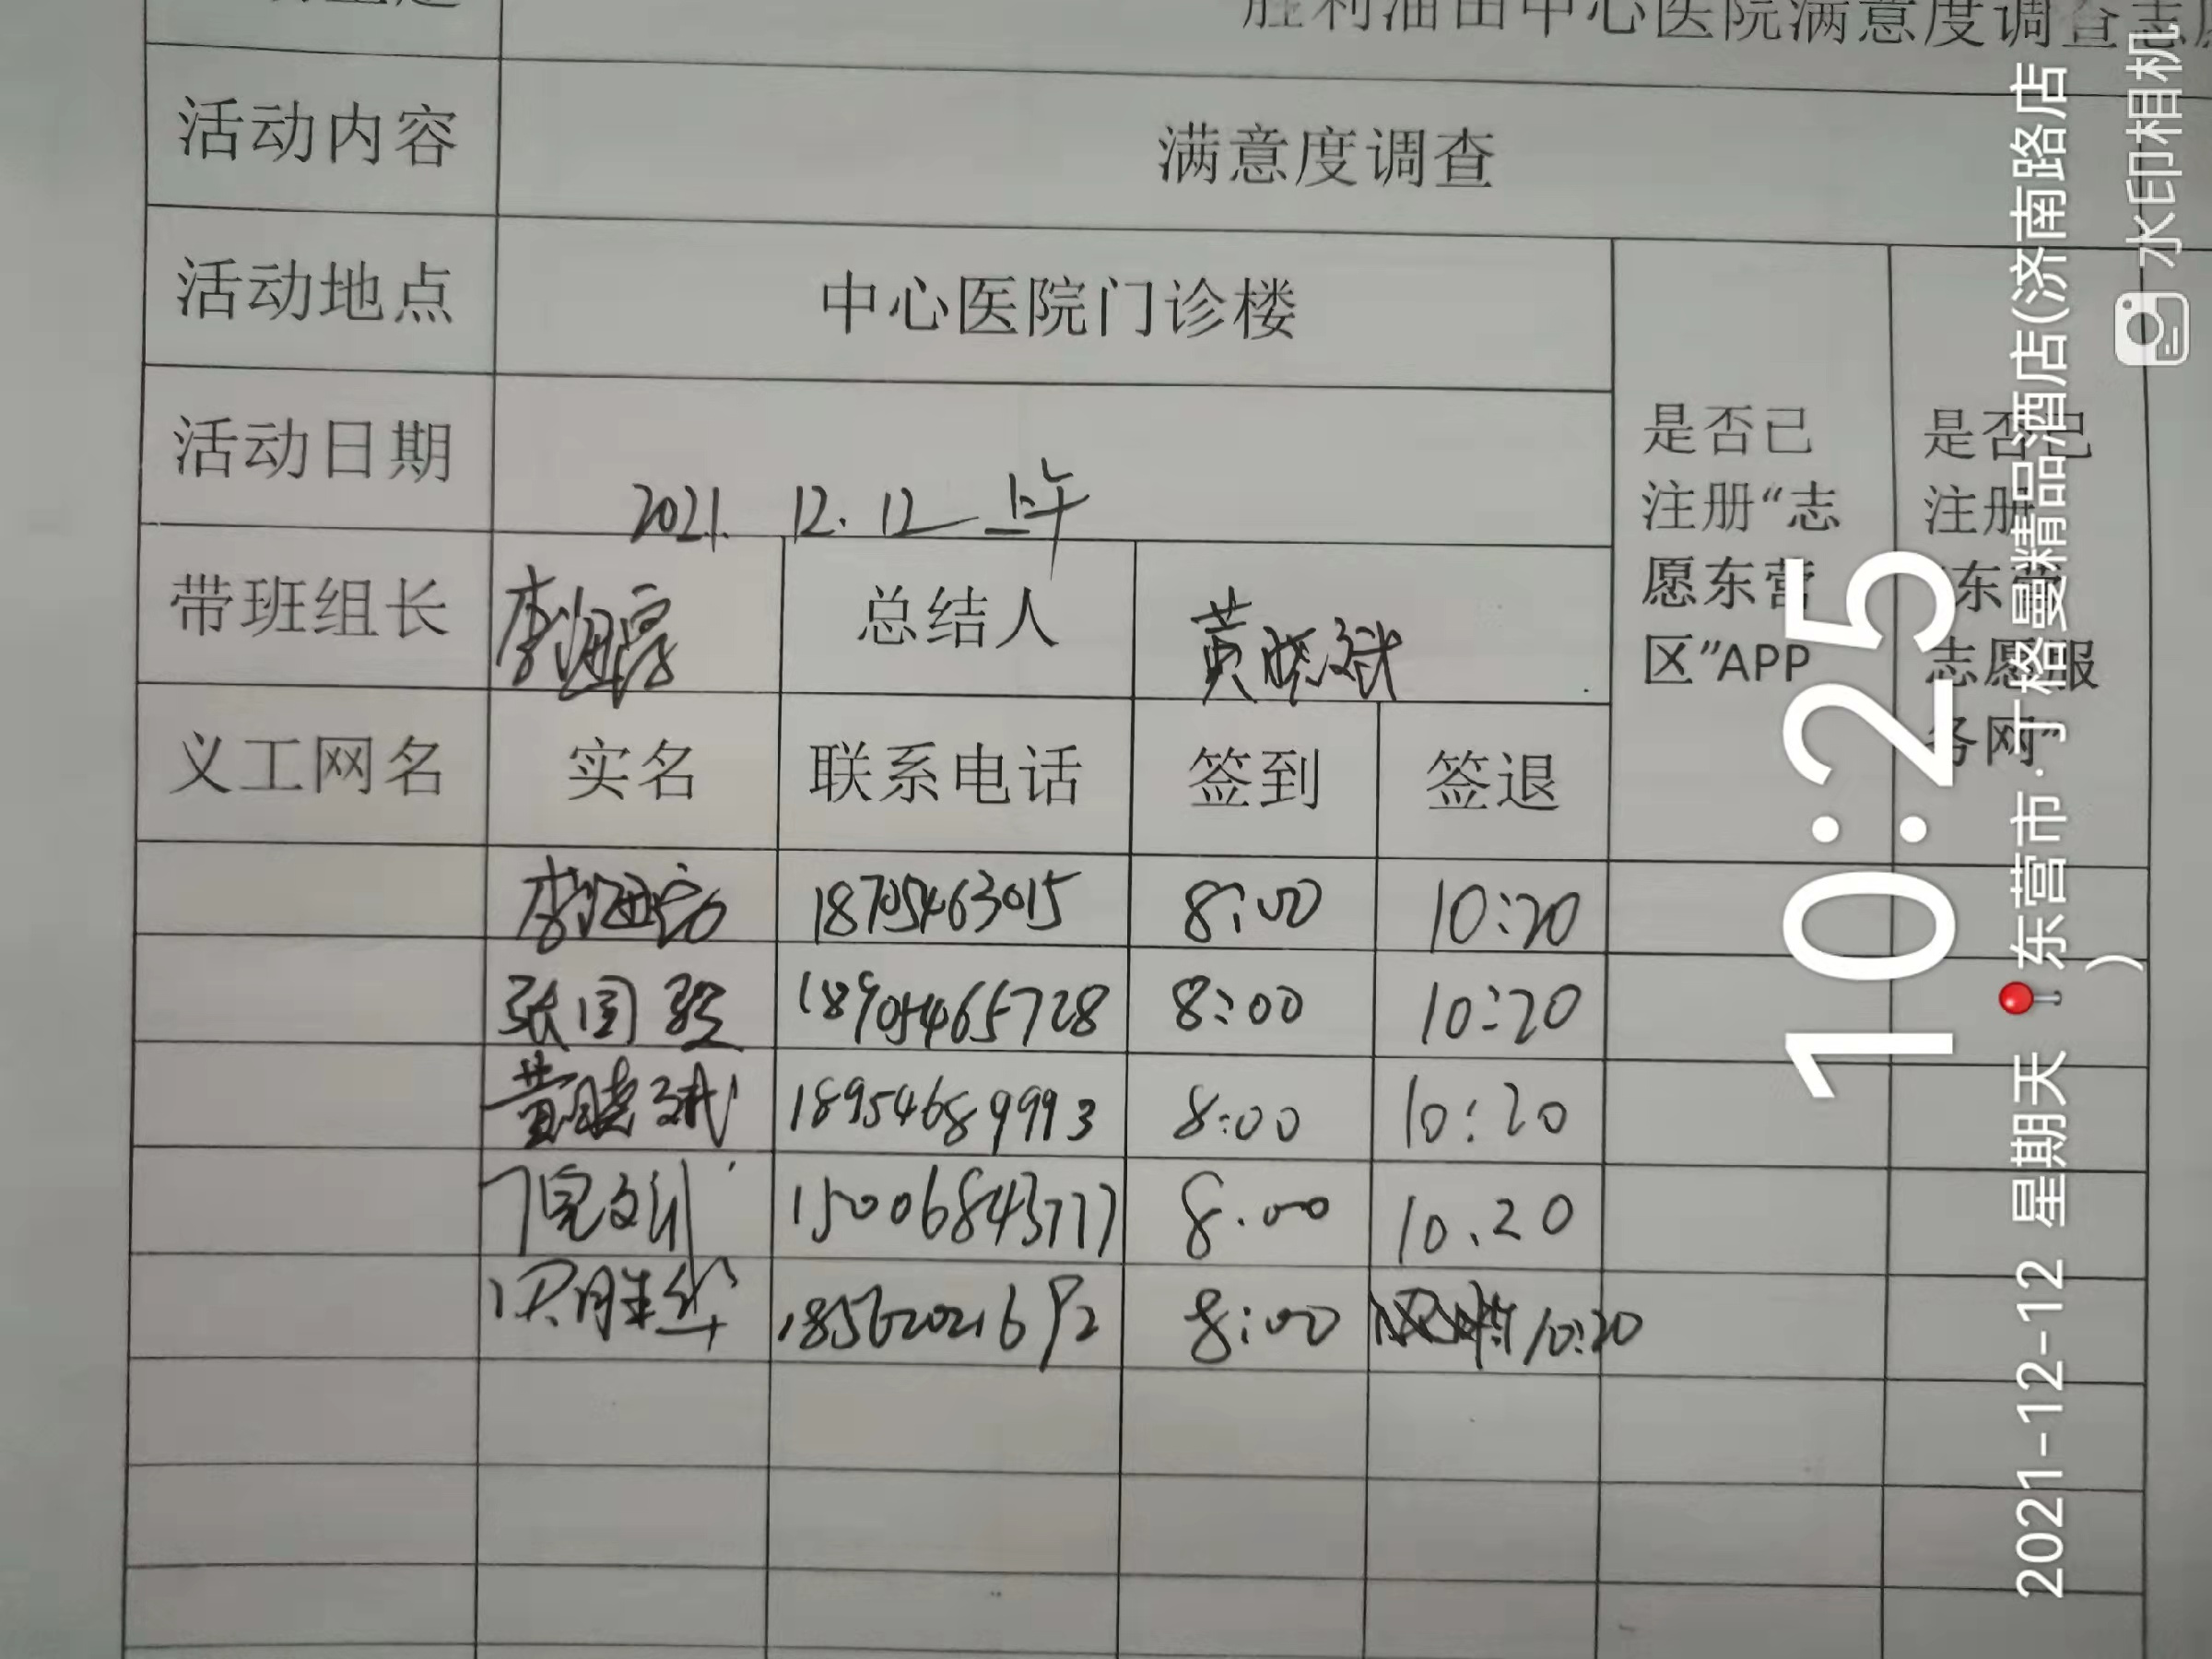 胜利油田中心医院满意度调查志愿
活动内容 满意度调查
活动地点 中心医院门诊楼
活动日期 2021. 12. 12 上午
带班组长 李 总结人 黄晓斌
是否已注册“志愿东营区”APP
是否已
注册
东营
志愿服
务网”
义工网名 实名 联系电话 签到 签退
李 18705463015 8:00 10:20
张国 18905465728 8:00 10:20
黄晓斌 18954689993 8:00 10:20
倪文 15006843777 8.00 10.20
洪胜华 8:00 10:20
10:25
2021-12-12 星期天 东营市·丁格曼精品酒店(济南路店)
水印相机